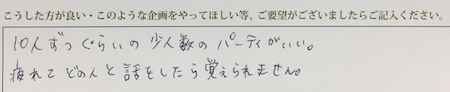 こうした方が良い・このような企画をやってほしい等、ご要望がございましたらご記入ください。
10人ずつぐらいの少人数のパーティがいい。
疲れてどの人と話をしたら覚えられません。